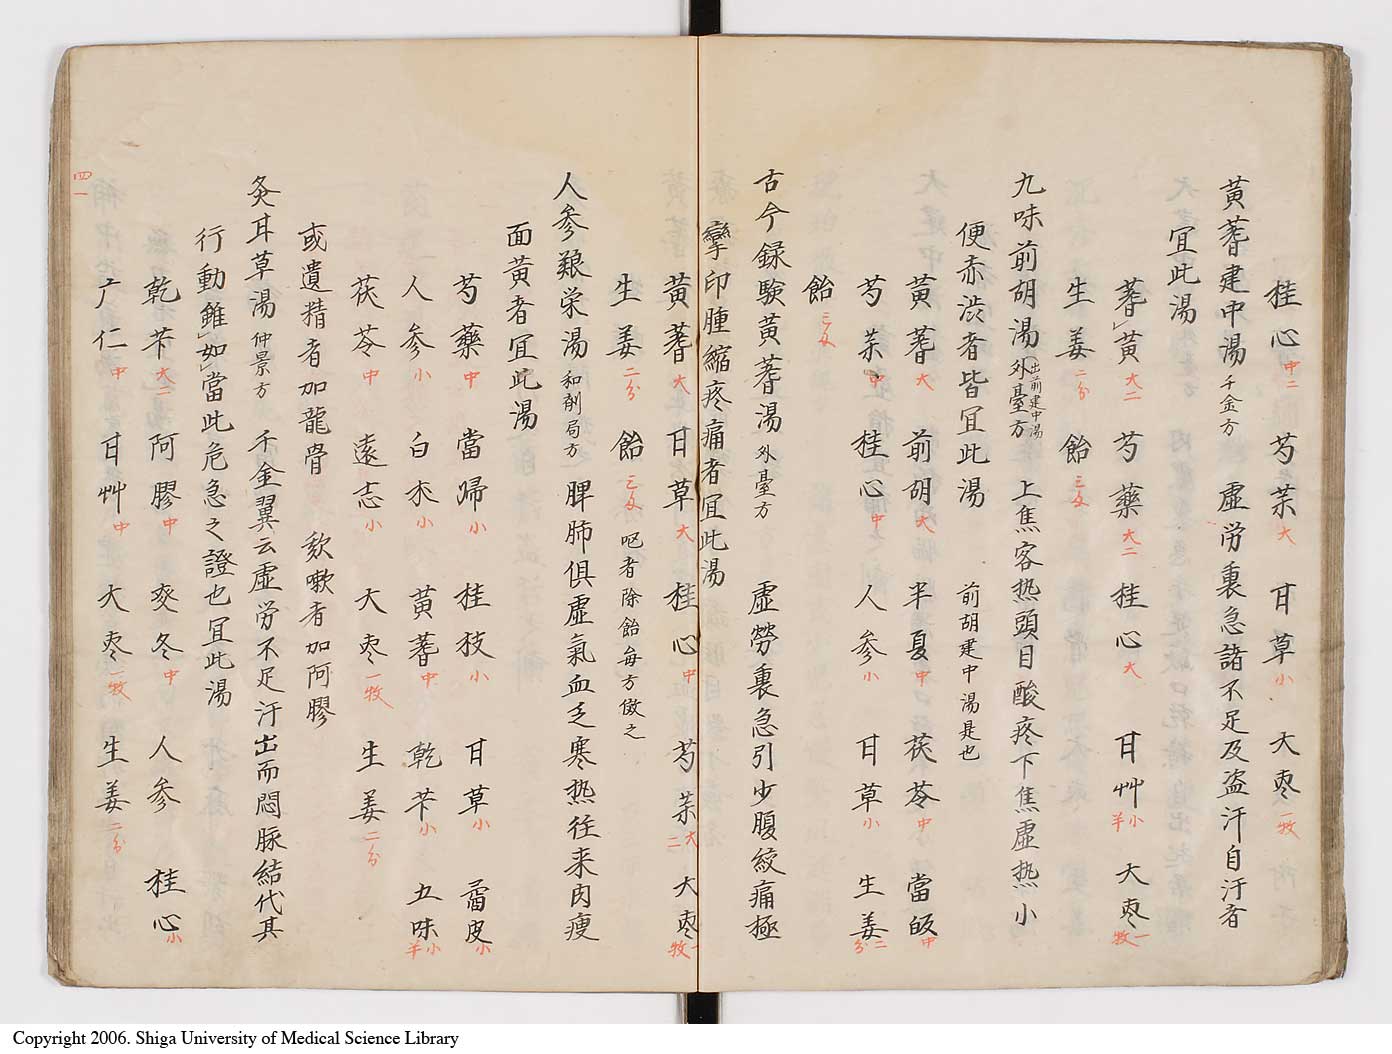 桂心中二 芍茱大 甘草小 大枣一牧
黄蓍建中湯千金方 虚労裏急諸不足及盗汗自汗者
宜此湯
蓍」黄大二 芍藥大二 桂心大 甘艸小半 大枣一牧
生姜二分 飴三匁
九味前胡湯出前建中湯外臺方 上焦客热頭目酸疼下焦虚热小
便赤渋者皆宜此湯 前胡建中湯是也
黄蓍大 前胡大 半夏中 茯苓中 當皈中
芍茱中 桂心中 人参小 甘草小 生姜二分
飴三匁
古今録験黄蓍湯外臺方 虚勞裏急引少腹絞痛極
攣卵腫縮疼痛者宜此湯
黄蓍大 甘草大 桂心中 芍茱大二 大枣一牧
生姜二分 飴三匁 呕者除飴每方倣之
人参艱栄湯和剤局方 脾肺俱虚氣血乏寒热往来肉痩
面黄者宜此湯
芍藥中 當帰小 桂枝小 甘草小 畨皮小
人参小 白朮小 黄蓍中 乾芐小 五味小半
茯苓中 遠志小 大枣一牧 生姜二分
或遺精者加龍骨 欬嗽者加阿膠
灸耳草湯仲景方 千金翼云虚労不足汗出而悶脉結代其
行動雖」如」當此危急之證也宜此湯
乾芐大二 阿膠中 麥冬中 人参 桂心小
广仁中 甘艸中 大枣一牧 生姜二分
四一
Copyright 2006. Shiga University of Medical Science Library